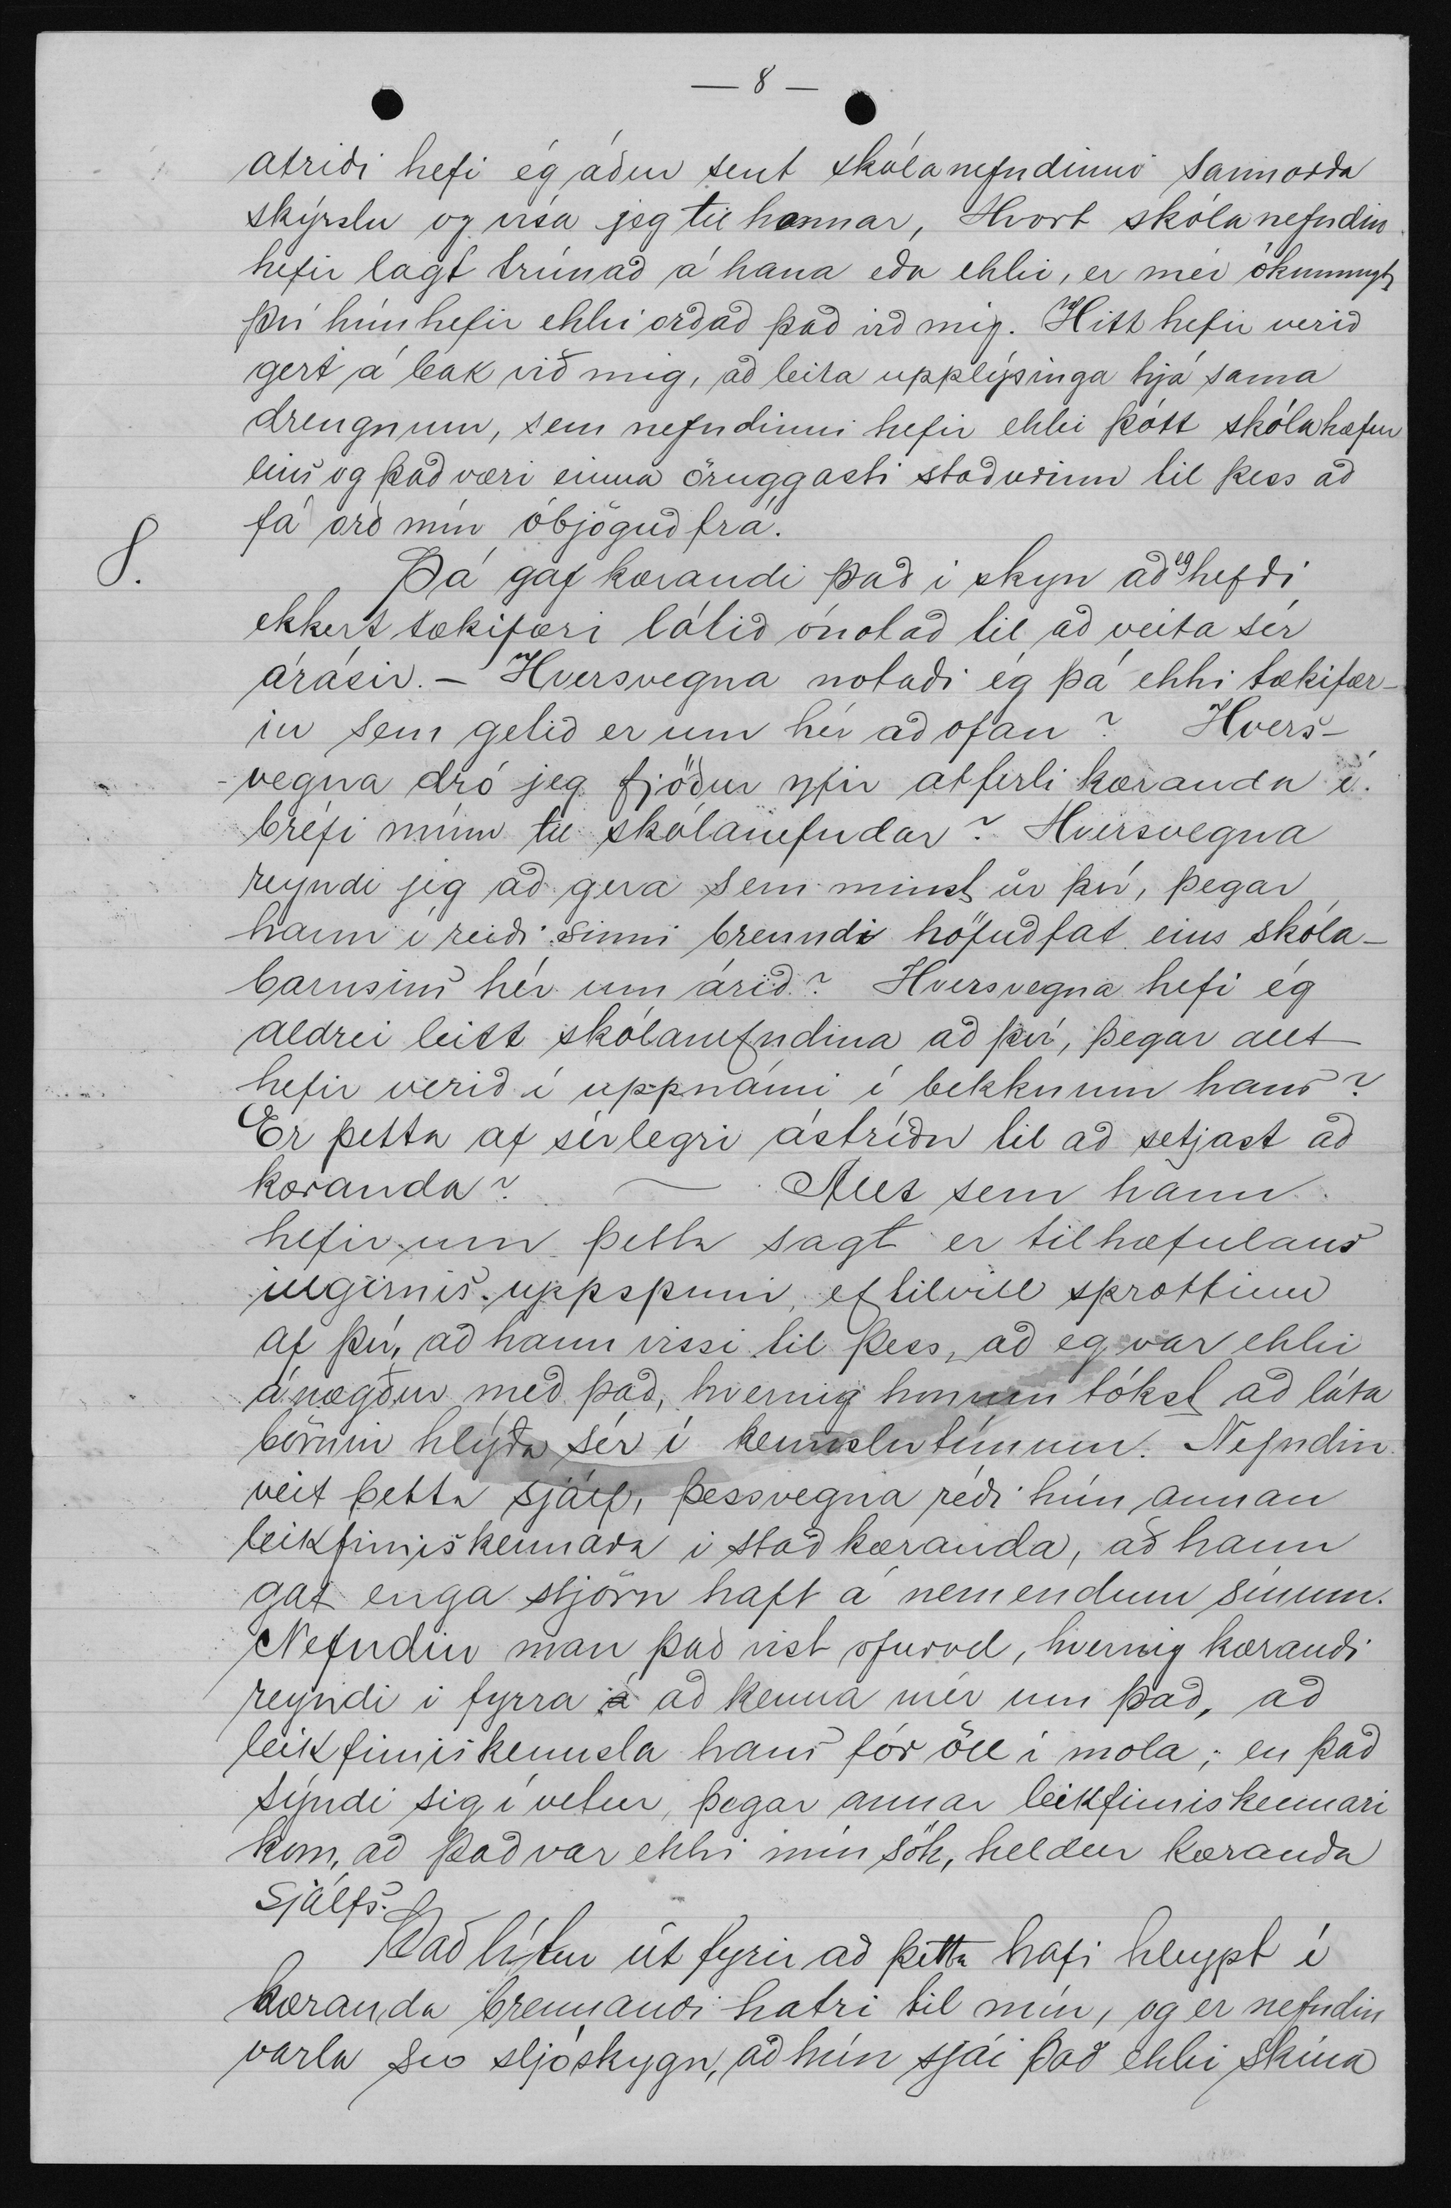 — 8 —
atriði hefi ég áður sent skólanefndinni sannorða
skýrslu og vísa jeg til hennar, Hvort skólanefndin
hefir lagt trúnað á hana eða ekki, er mér ókunnugt,
því hún hefir ekki orðað það við mig. Hitt hefir verið
gert á bak við mig, að leita upplýsinga hjá sama
drengnum, sem nefndinni hefir ekki þótt skólahæfur
eins og það væri einna öruggasti staðurinn til þess að
fá orð mín óbjöguð frá.
8. Þá gaf kærandi það i skyn að eg hefði
ekkert tækifæri látið ónotað til að veita sér
árásir. – Hversvegna notaði ég þá ekki tækifær-
in sem getið er um hér að ofan? Hvers-
-vegna dró jeg fjöður yfir atferli kæranda í
bréfi mínu til skólanefndar? Hversvegna
reyndi jeg að gera sem minst úr því, þegar
hann í reiði sinni brenndi höfuðfat eins skóla-
barnsins hér um árið? Hversvegna hefi ég
aldrei leitt skólanefndina að því, þegar allt
hefir verið í uppnámi í bekknum hans?
Er þetta af sérlegri ástríðu til að setjast að
kæranda? — Allt sem hann
hefir um þetta sagt er tilhæfulaus
illgirnis uppspuni, ef til vill sprottinn
af því, að hann vissi til þess, að eg var ekki
ánægður með það, hvernig honum tókst að láta
börnin hlýða sér í kennslutímum. Nefndin
veit þetta sjálf, þessvegna réði hún annan
leikfimiskennara i stað kæranda, að hann
gat enga stjórn haft á nemendum sínum.
Nefndin man það vist ofurvel, hvernig kærandi
reyndi i fyrra að kenna mér um það, að
leikfimiskennsla hans fór öll í mola; en það
sýndi sig í vetur, þegar annar leikfimiskennari
kom, að það var ekki mín sök, heldur kæranda
sjálfs.
Það lítur út fyrir að þetta hafi hleypt í
kæranda brennandi hatri til mín, og er nefndin
varla svo sljóskygn, að hún sjái það ekki skína